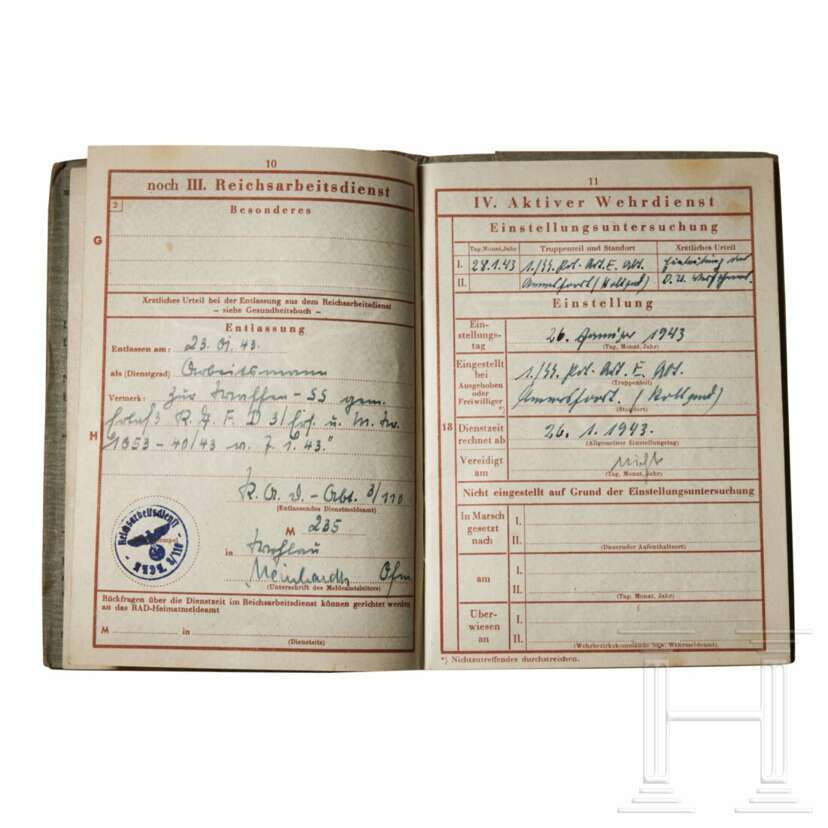 10
noch III. Reichsarbeitsdienst
2
Besonderes
G
Ärztliches Urteil bei der Entlassung aus dem Reichsarbeitsdienst
– siehe Gesundheitsbuch –
Entlassung
Entlassen am: 23. 01. 43.
als (Dienstgrad) Arbeitsmann
Vermerk: „Zur Waffen-SS gem.
H
1053 - 40/43 v. 7. 1. 43."
R. A. D. - Abt. 3/110
(Entlassendes Dienstmeldeamt)
M 235
in Wohlau
Meinhardt Ofm
(Unterschrift des Meldeamtsleiters)
Reichsarbeitsdienst
Rückfragen über die Dienstzeit im Reichsarbeitsdienst können gerichtet werden
an das RAD-Heimatmeldeamt
M in
(Dienstsitz)
11
IV. Aktiver Wehrdienst
Einstellungsuntersuchung
Tag, Monat, Jahr Truppenteil und Standort Ärztliches Urteil
I. 28.1.43 1./SS. Pol. Art. E. Abt.
II. Amersfoort (Holland)
Einstellung
Ein-
stellungs-
tag
26. Januar 1943
(Tag, Monat, Jahr)
Eingestellt
bei
Ausgehoben
oder
Freiwilliger
*)
1./SS. Pol. Art. E. Abt.
(Truppenteil)
Amersfoort. (Holland)
(Standort)
18 Dienstzeit
rechnet ab
26. 1. 1943.
(Allgemeiner Einstellungstag)
Vereidigt
am
nicht
(Tag, Monat, Jahr)
Nicht eingestellt auf Grund der Einstellungsuntersuchung
In Marsch
gesetzt
nach
I.
II.
(Dauernder Aufenthaltsort)
am
I.
II.
(Tag, Monat, Jahr)
Über-
wiesen
an
I.
II.
(Wehrbezirkskommando bzw. Wehrmeldeamt)
*) Nichtzutreffendes durchstreichen.